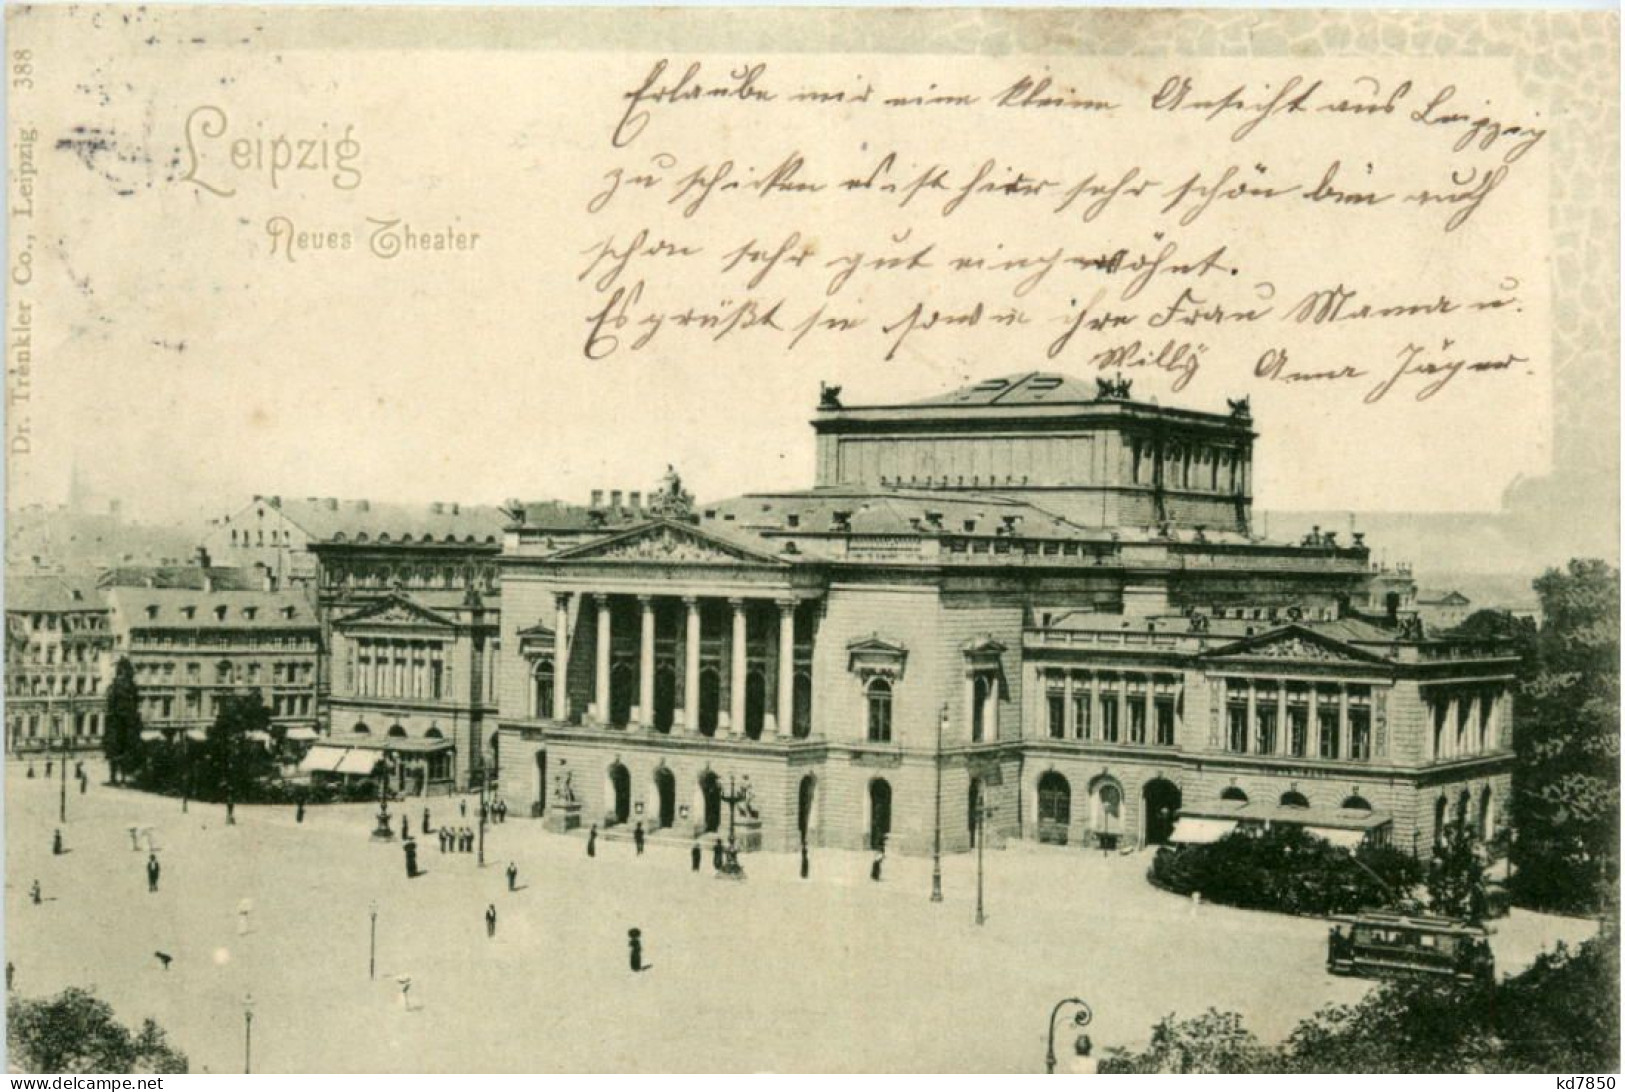 Dr. Trenkler Co., Leipzig. 388
Leipzig
Neues Theater
Erlaube mir eine kleine Ansicht aus Leipzig
zu schicken es ist hier sehr schön bin auch
schon sehr gut eingewöhnt.
Es grüßt sie sowie ihre Frau Mama u.
Willy Anna Jäger.
www.delcampe.net
kd7850